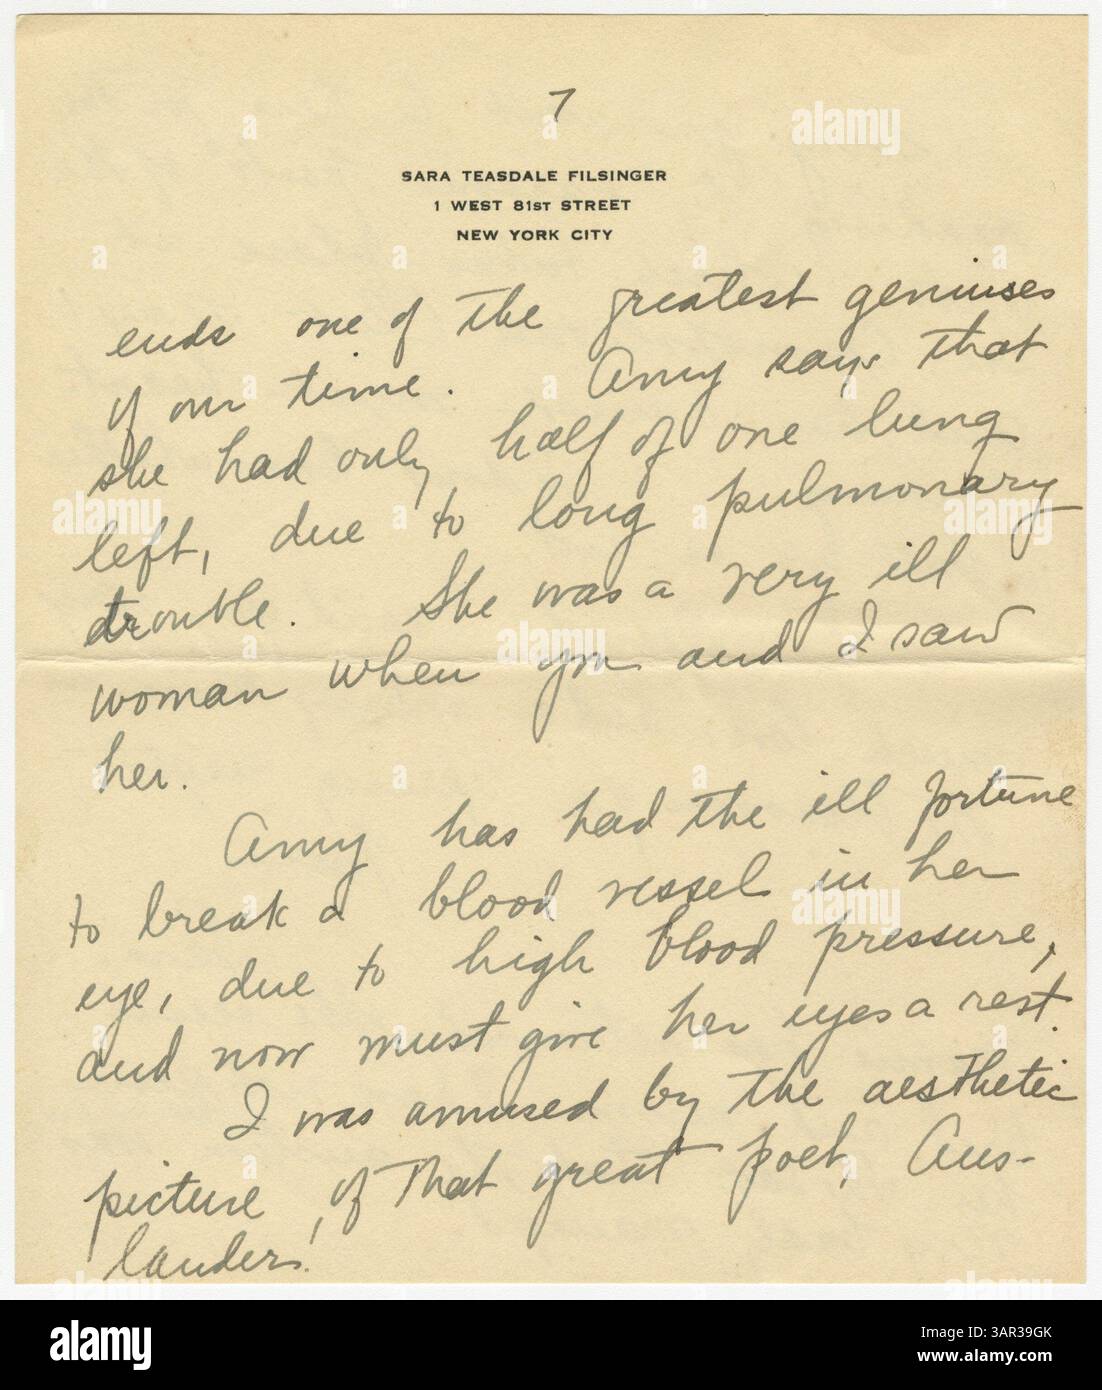 7
SARA TEASDALE FILSINGER
1 WEST 81ST STREET
NEW YORK CITY
ends one of the greatest geniuses
of our time. Amy says that
she had only half of one lung
left, due to long pulmonary
trouble. She was a very ill
woman when you and I saw
her.
Amy has had the ill fortune
to break a blood vessel in her
eye, due to high blood pressure,
and now must give her eyes a rest.
I was amused by the aesthetic
picture, of that great poet, Aus-
landers!
alamy
Image ID: 3AR39GK
www.alamy.com